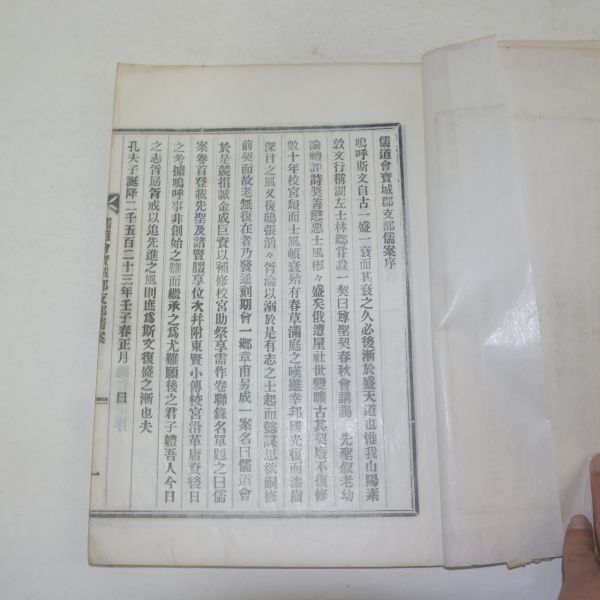 儒道會寶城郡支部儒案序
嗚呼斯文自古一盛一衰而其衰之久必後漸於盛天道也惟我山陽素
敦文行稱湖左士林鄉嘗設一契曰尊聖契春秋會講謁 先聖叙老幼
論禮評詩奬善懲惡士風彬々盛矣俄遭屋社世變曠古其契廢不復修
數十年校宮頹而士風頓衰殆有春草滿庭之嘆雖幸邦國光復而漆齒
深目之風又復鴟張滔々胥淪以溺於是有志之士起而懿謨思欲嗣修
前契而故老無復在者乃發通刻期會一鄉章甫另成一案名曰儒道會
於是競捐誠金成巨資以補修校宮助祭享需作卷聯錄名單題之曰儒
案卷首登載先聖及諸賢腏享位次并附東賢小傳校宮沿革庸資後日
之考據嗚呼事非創始之難而繼承之爲尤難願後之君子體吾人今日
之志胥勗胥戒以追先進之風則庶爲斯文復盛之漸也夫
孔夫子誕降二千五百二十三年壬子春正月 日
儒道會寶城郡支部儒案
序
一